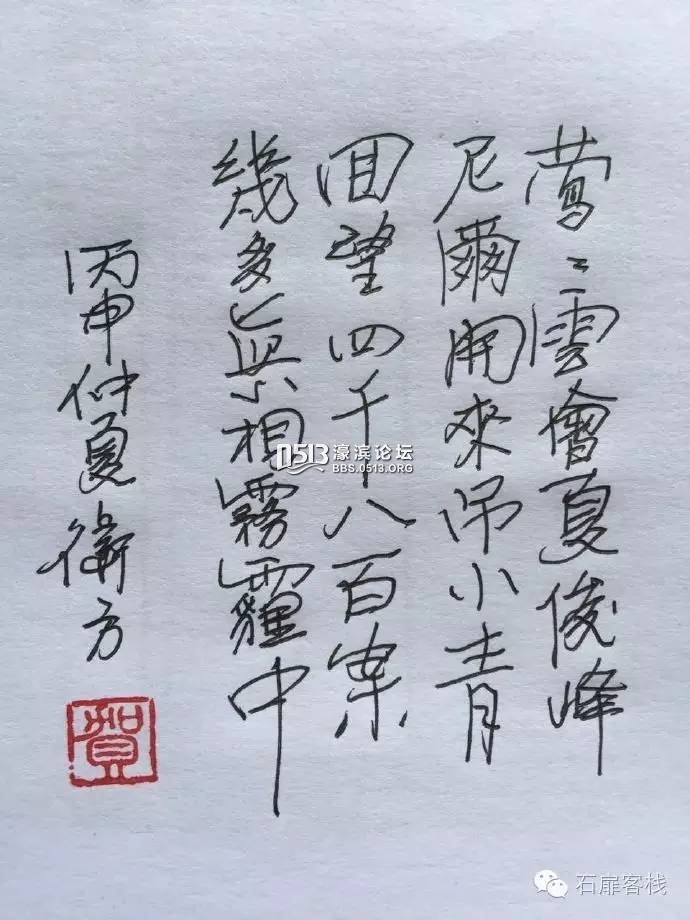 莺〻雲會夏俊峰
尼爾開來吊小青
回望四千八百案
幾多真相霧霾中
丙申仲夏衛方
賀
0513 濠滨论坛
BBS.0513.ORG
石扉客栈